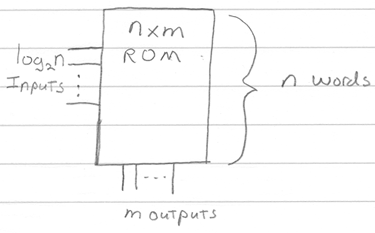 n x m
ROM
log₂n
Inputs
n words
m outputs